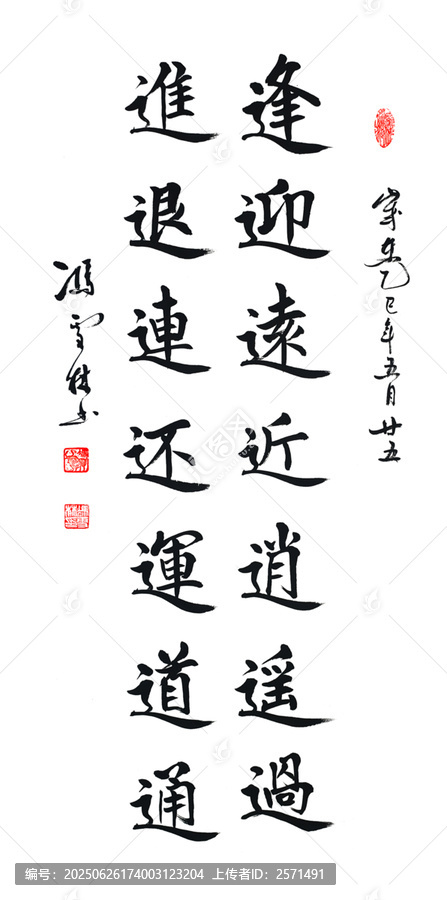 歲在乙巳年五月廿五
逢迎遠近逍遥過
進退連还運道通
馮雪书
编号：20250626174003123204 上传者ID：2571491